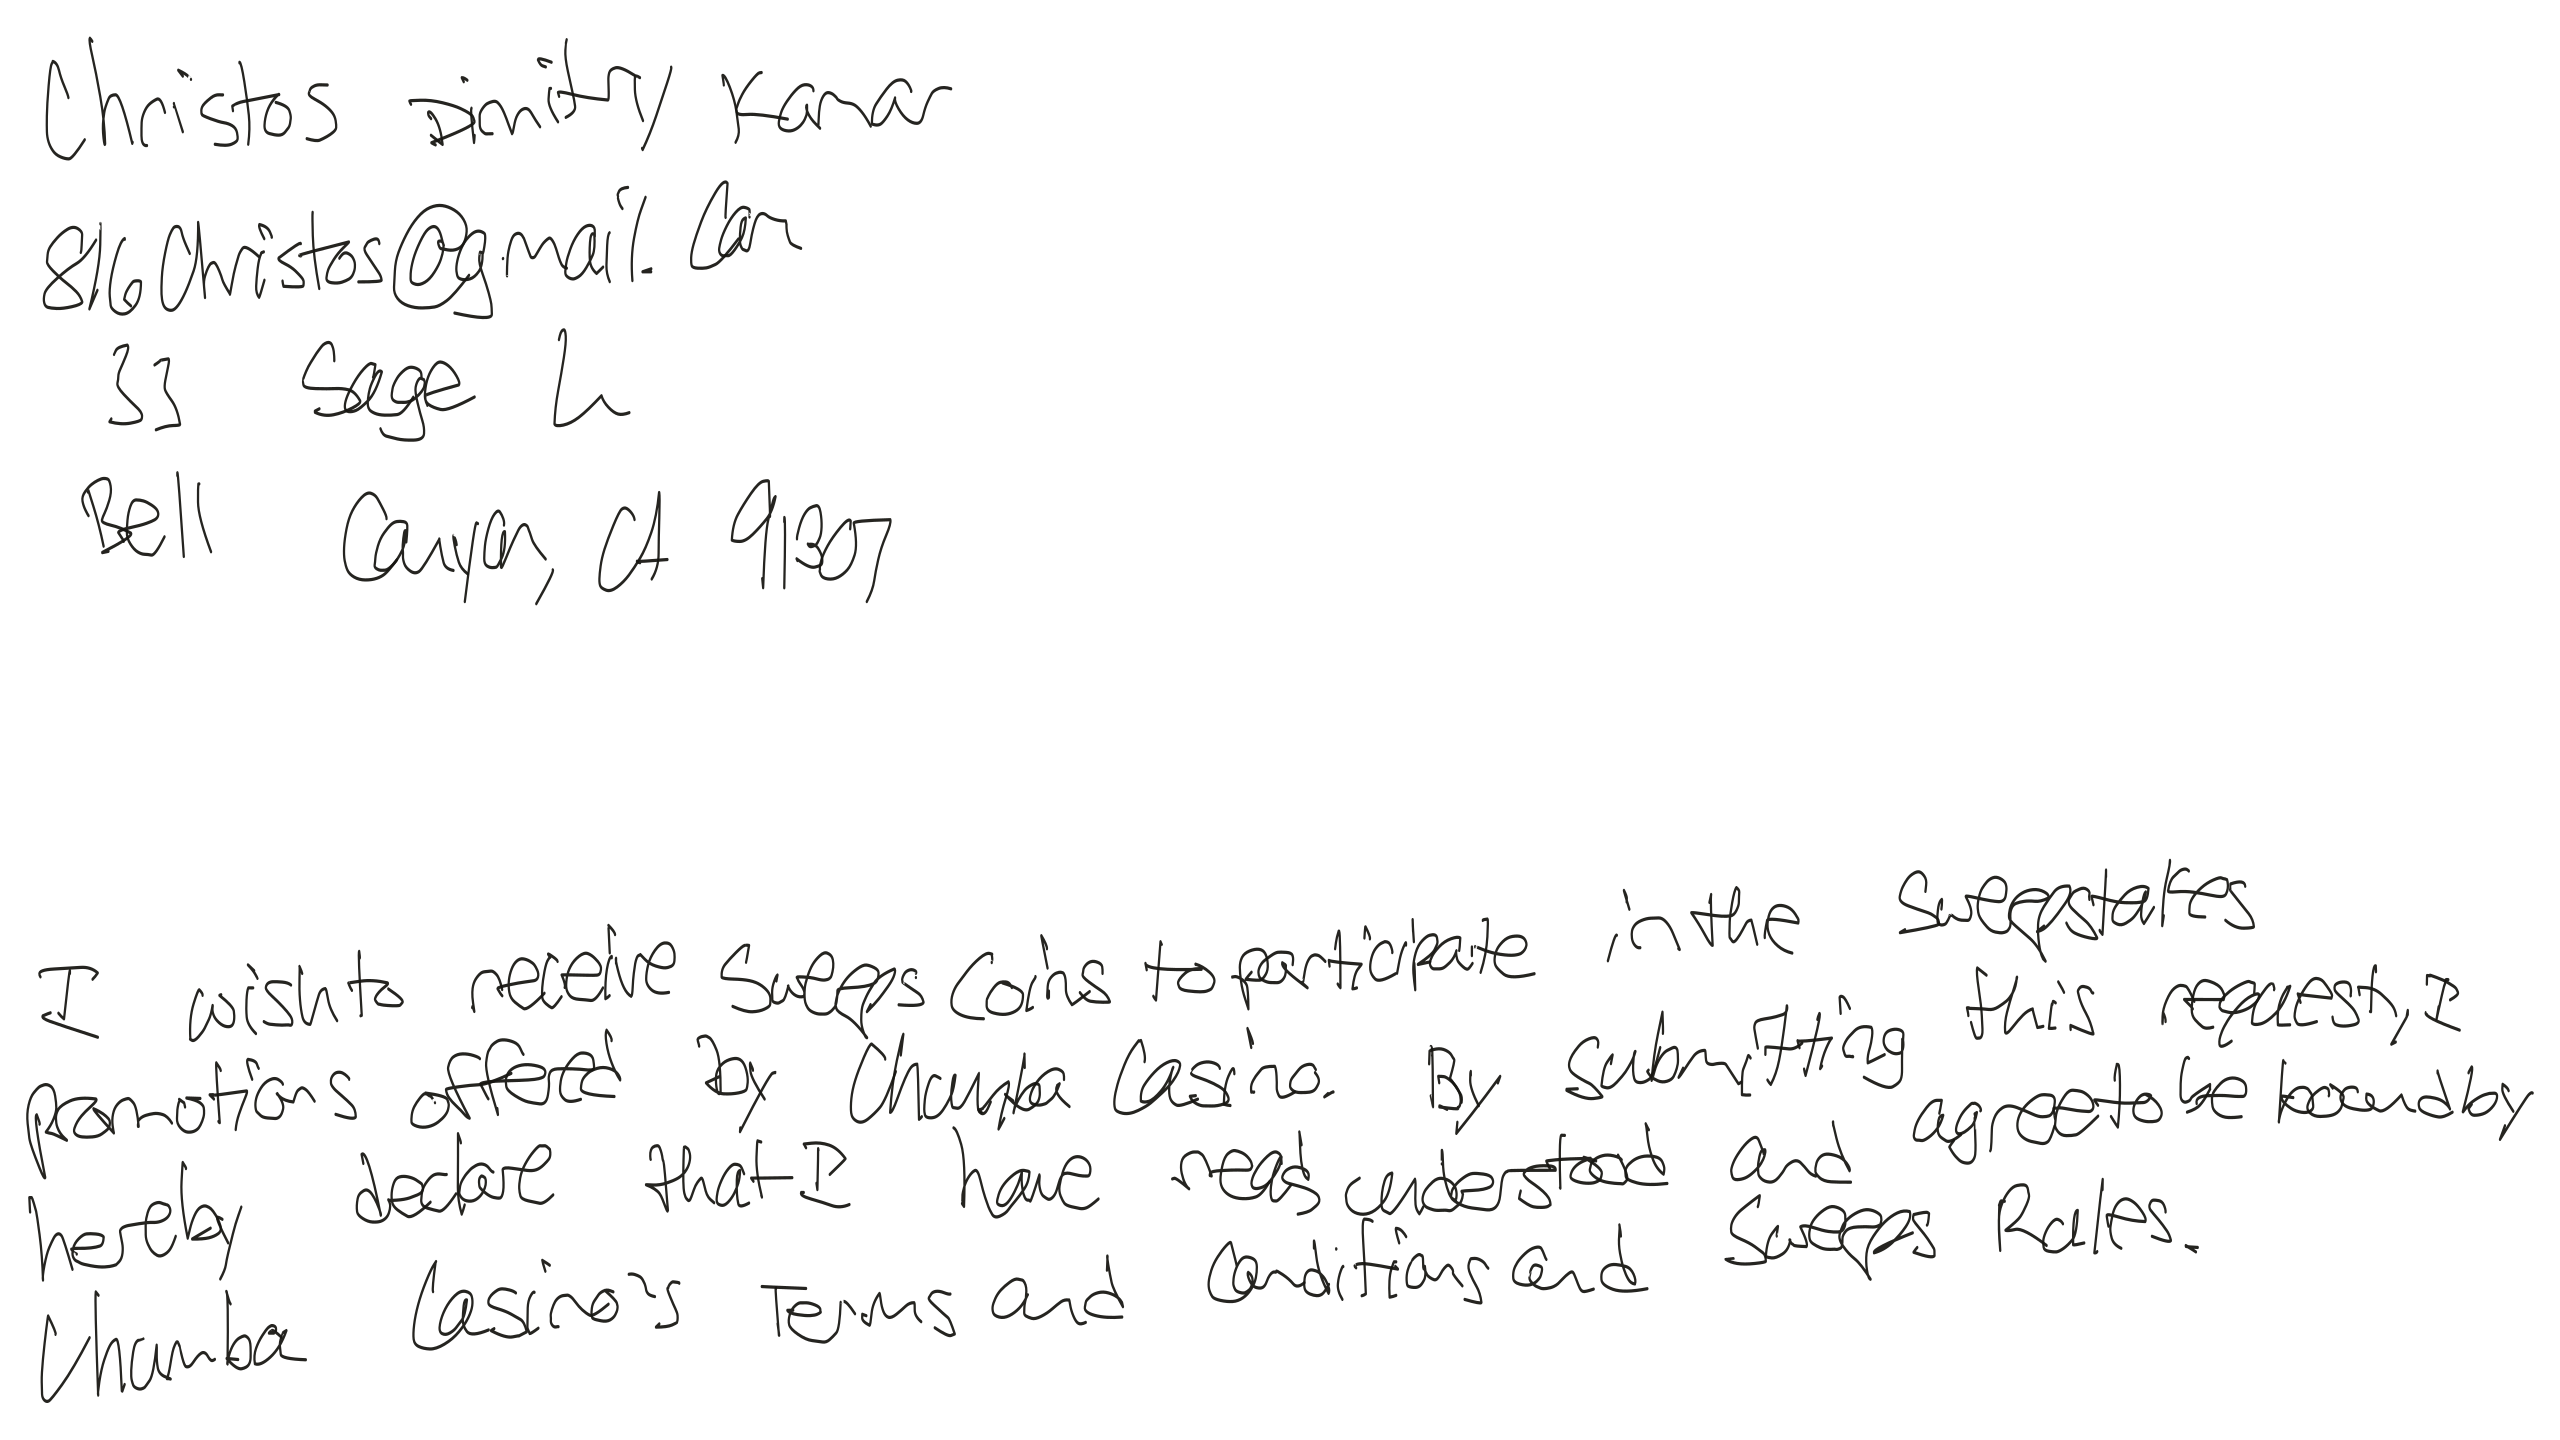 Christos Dimitry Kamar
816Christos@gmail.com
33 Sage Ln
Bell Canyon, CA 91307
I wish to receive Sweeps Coins to participate in the sweepstakes
promotions offered by Chumba Casino. By submitting this request, I
hereby declare that I have read understood and agree to be bound by
Chumba Casino's Terms and Conditions and Sweeps Rules.